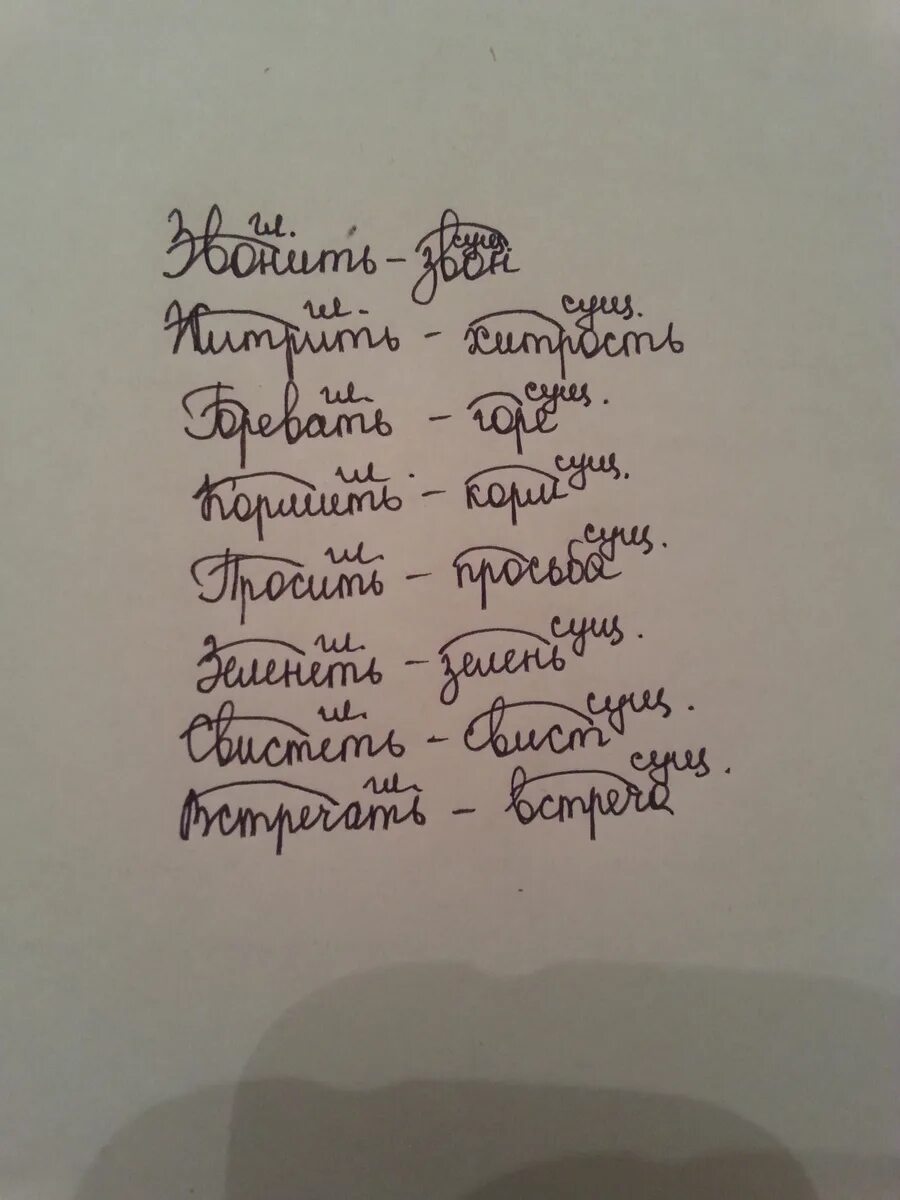 гл. сущ.
Звонить - звон
гл. сущ.
Хитрить - хитрость
гл. сущ.
Горевать - горе
гл. сущ.
Кормить - корм
гл. сущ.
Просить - просьба
гл. сущ.
Зеленеть - зелень
гл. сущ.
Свистеть - Свист
гл. сущ.
Встречать - встреча